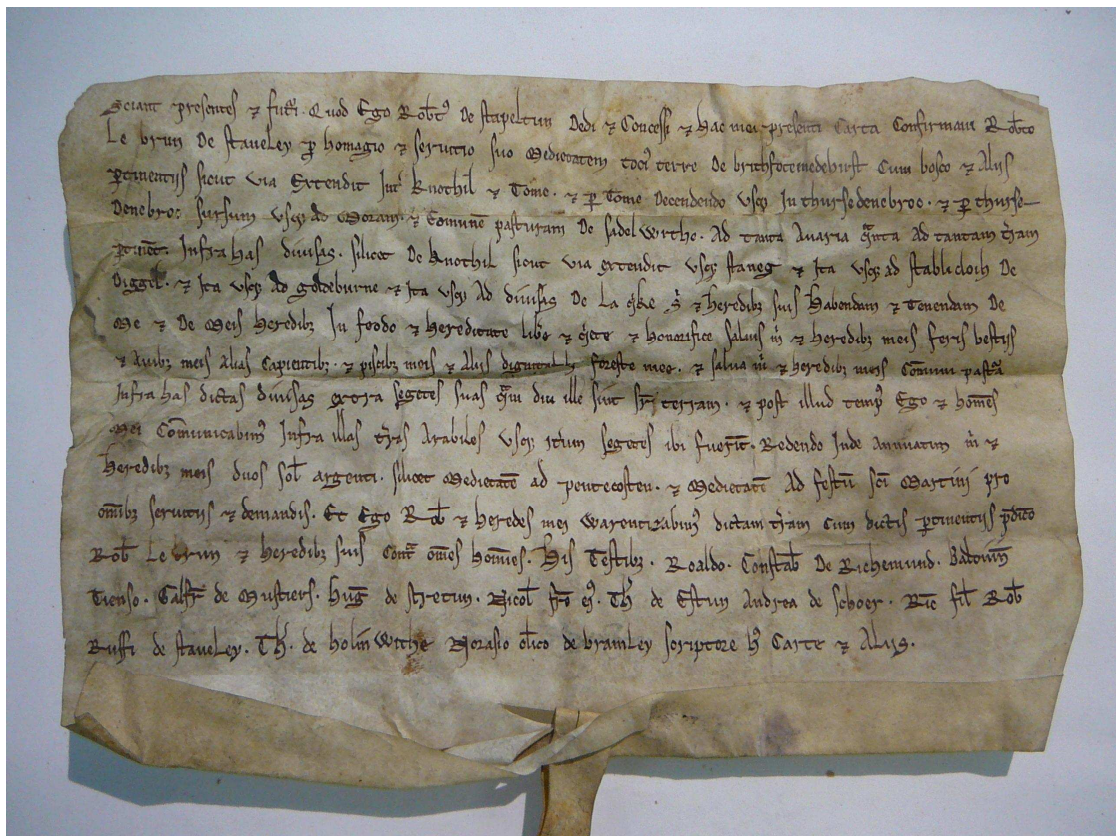 Sciant presentes ⁊ futᷓi. Quod Ego Rob̄tꝰ De stapeltun Dedi ⁊ Concessi ⁊ Hac mea presenti Carta Confirmaui Rob̄to
Le brun De staueLey ꝓ homagio ⁊ seruitio suo Medietatem tociꝰ terre De brithfotemedehirst Cum bosco ⁊ Aliis
ꝑtinentiis sicut via Extendit Int̄ Knothil ⁊ Tome. ⁊ ꝑ Tome Decendendo vsqꝫ In thursedenebroc. ⁊ ꝑ thurse-
Denebroc sursum vsqꝫ ad Moram. ⁊ Comunē pasturam De sadelwrthe. Ad tanta Auaria q̄nta Ad tantam t̄ram
ꝑtinēt. Infra has diuisas. silicet De Knothil sicut via extendit vsqꝫ staneg ⁊ Ita vsqꝫ ad stablicloih De
Diggil. ⁊ Ita vsqꝫ Ad goldeburne ⁊ Ita vsqꝫ Ad diuisas De La ⁊ heredibꝫ suis Habendam ⁊ Tenendam De
Me ⁊ De Meis Heredibꝫ In feodo ⁊ Hereditate lib̄e ⁊ ⁊ honorifice saluis m̄ ⁊ heredibꝫ meis feris bestiis
⁊ Auibꝫ meis alias Capientibꝫ. ⁊ piscibꝫ meis ⁊ Aliis foreste mee. ⁊ salua m̄ ⁊ heredibꝫ meis Cōmuni past̄a
Infra has dictas diuisas extra segetes suas q̄m diu ille sint sr̄ terram. ⁊ post illud tempꝰ Ego ⁊ homēs
Mei Cōmunicabimꝰ Infra illas t̄ras Arabiles vsqꝫ it̄um segetes ibi fuerīt. Redendo Inde Annuatim m̄ ⁊
Heredibꝫ meis duos sol̄ argenti. silicet Medietatē ad pentecosten. ⁊ Medietatē Ad festū sc̄i Martini pro
om̄ibꝫ seruitiis ⁊ demandis. Et Ego Rob̄ ⁊ Heredes mei warentizabimꝰ dictam t̄ram cum dictis ꝑtinentiis p̄dicto
Rob̄ Le brun ⁊ heredibꝫ suis Cont̄ om̄es homīes. His Testibꝫ. Roaldo. Constab̄ De Richemund.
Tienso. Galfr̄ de Mustiers. Hug̅ de stretun. Nicol̄ fr̄e eꝰ. Th̄ de Estun Andrea de Ric̄ fil̄ Rob̄
Ruffi de staueLey. Th̄. de holinWithe cl̄ico de bramLey scriptore hꝰ Carte ⁊ ALiis.